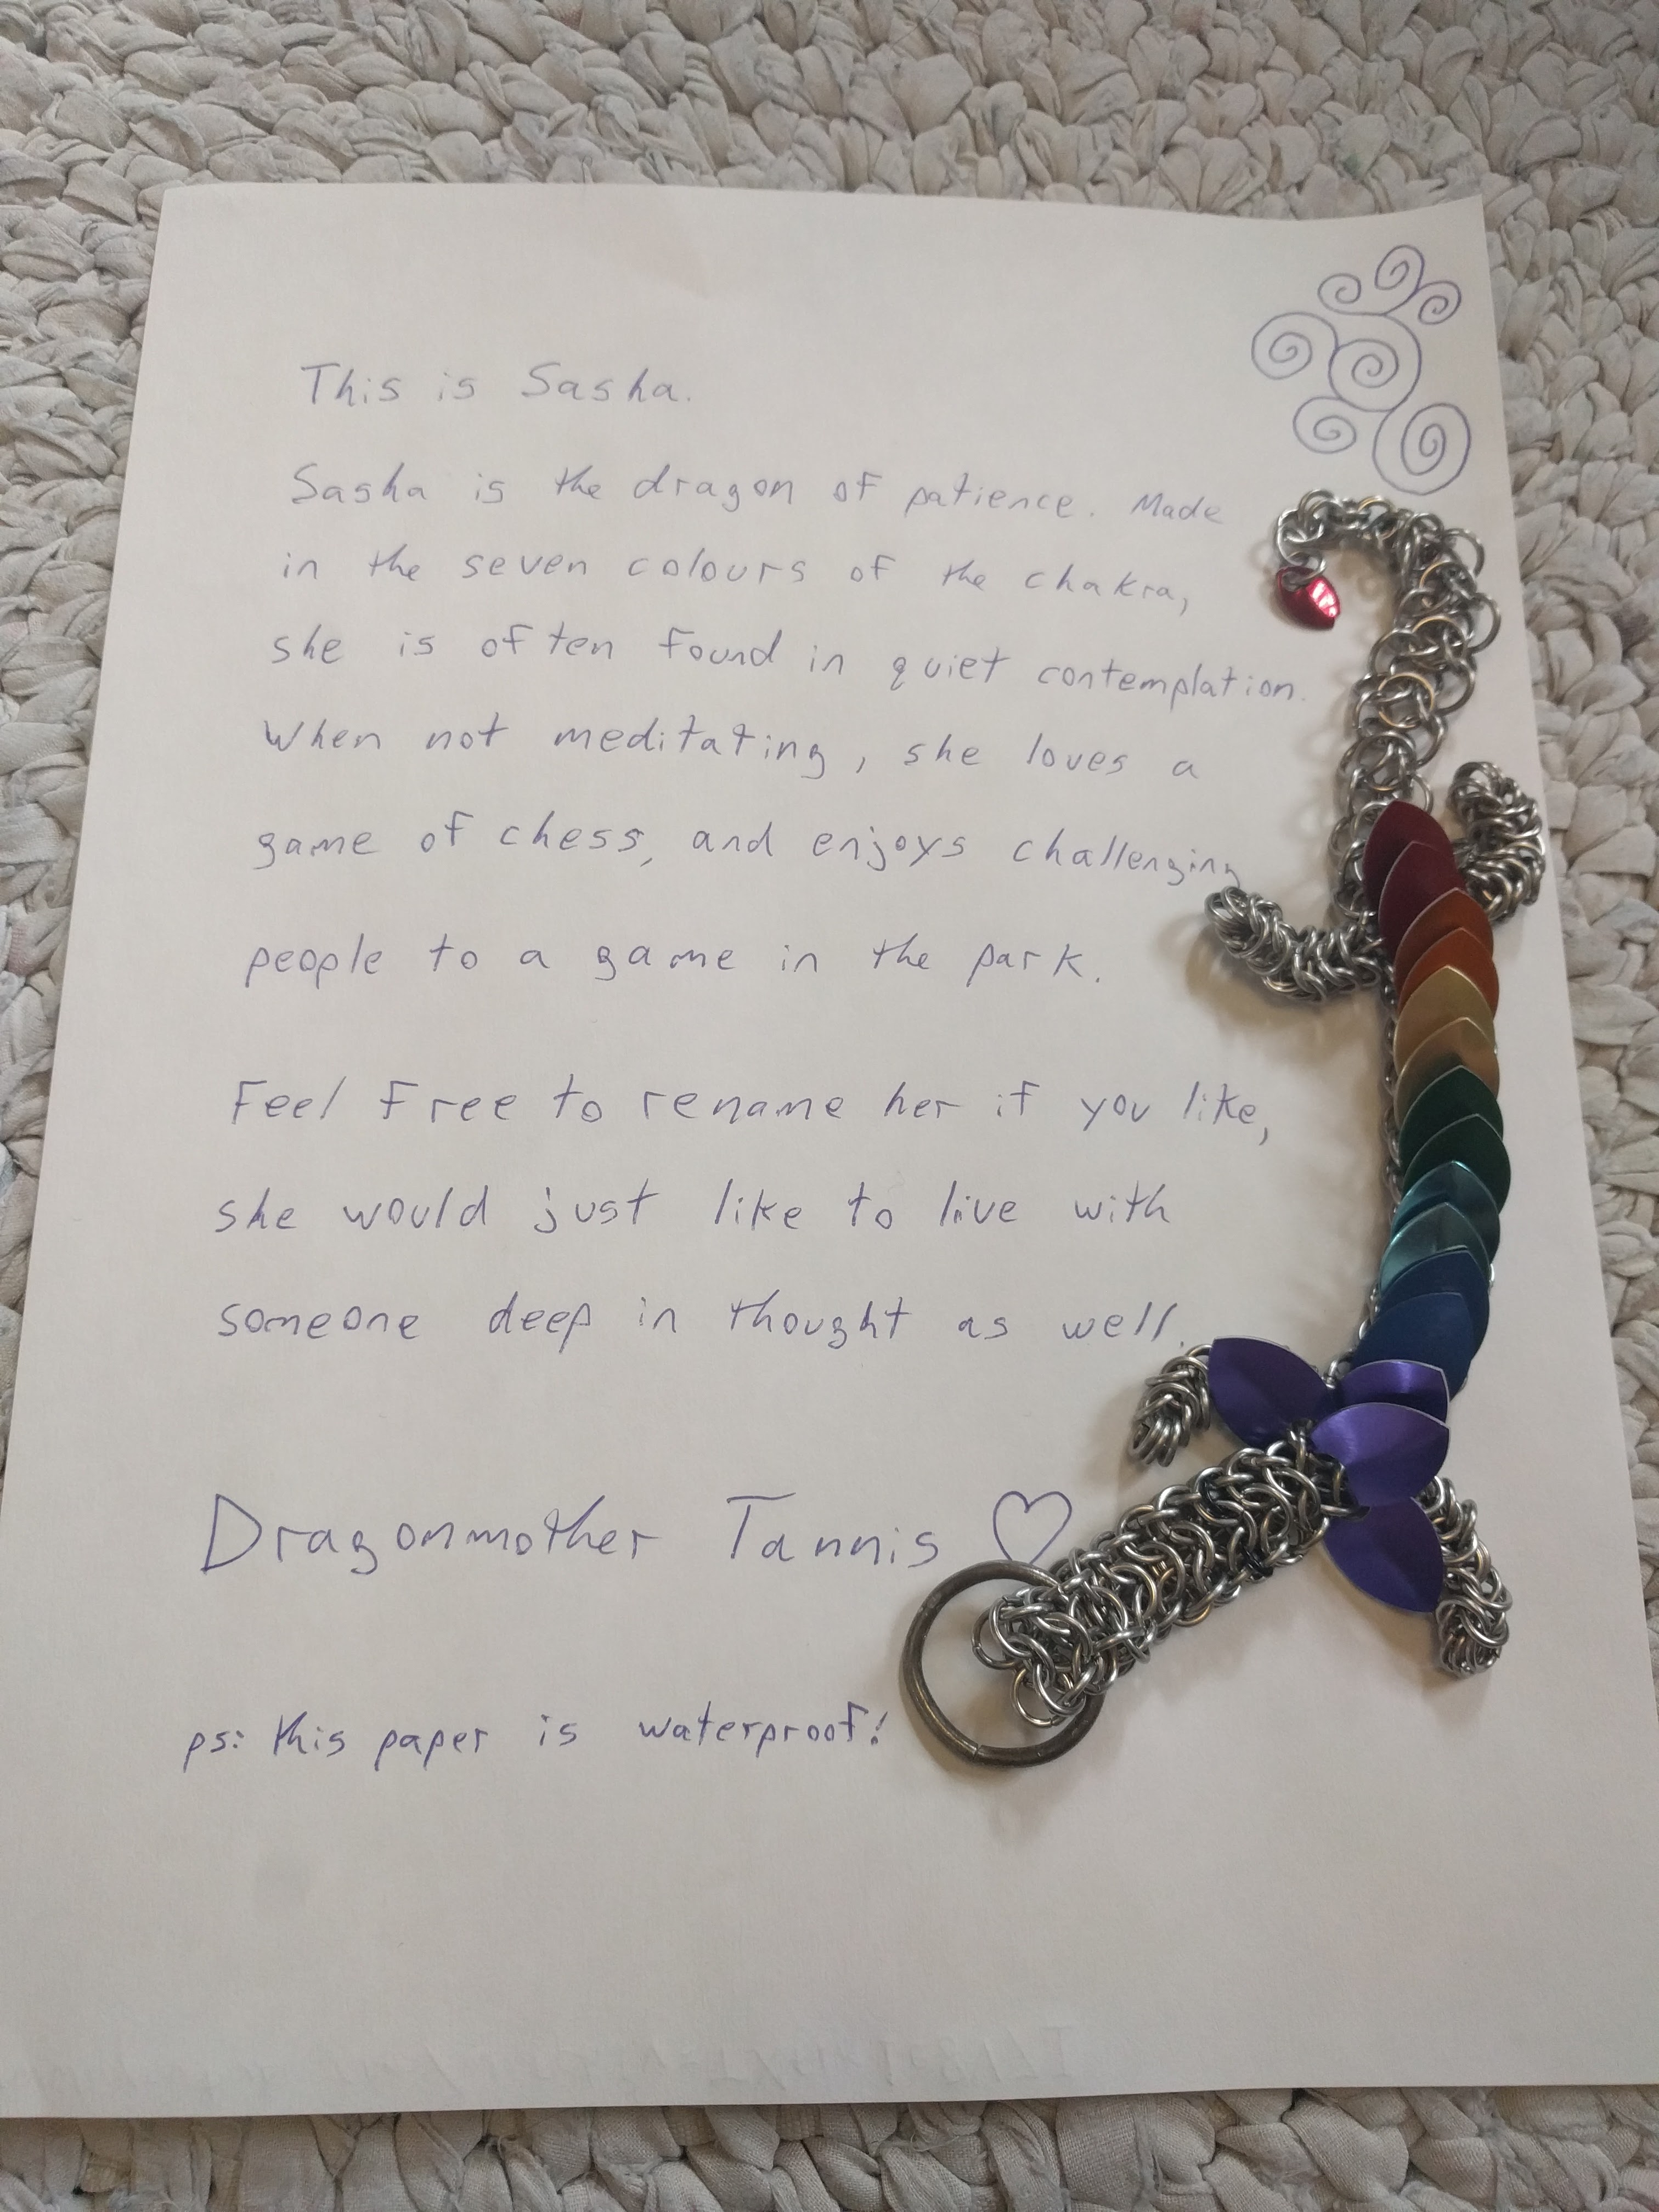 This is Sasha.
Sasha is the dragon of patience. Made
in the seven colours of the chakra,
she is often found in quiet contemplation.
When not meditating, she loves a
game of chess, and enjoys challenging
people to a game in the park.
Feel free to rename her if you like,
she would just like to live with
someone deep in thought as well.
Dragonmother Tannis ♡
ps: this paper is waterproof!